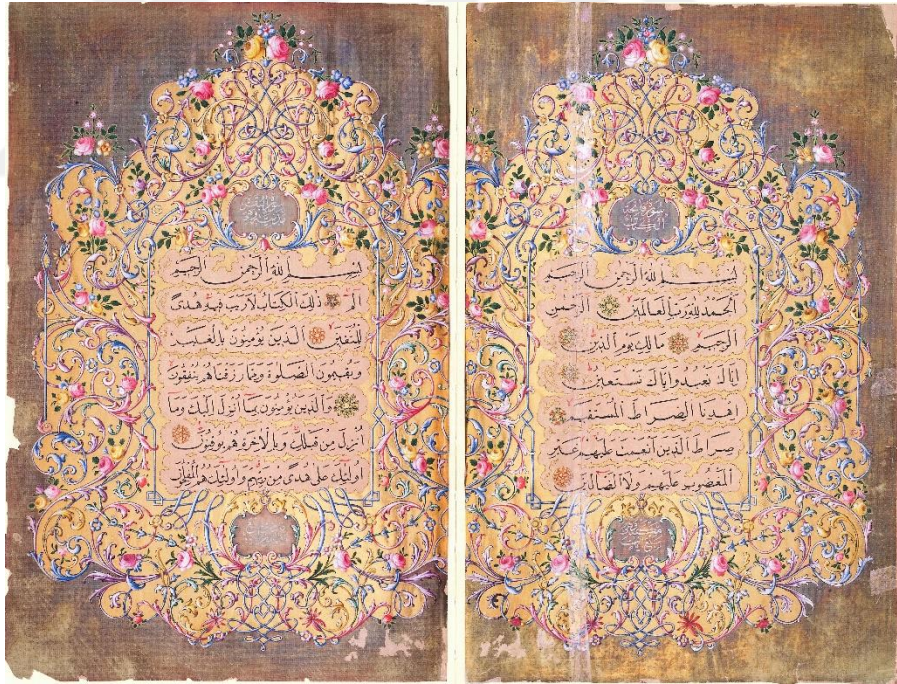 بسم الله الرحمن الرحيم
الحمد لله رب العالمين الرحمن
الرحيم مالك يوم الدين
اياك نعبد واياك نستعين
اهدنا الصراط المستقيم
صراط الذين انعمت عليهم غير
المغضوب عليهم ولا الضالين
بسم الله الرحمن الرحيم
الم ذلك الكتاب لا ريب فيه هدى
للمتقين الذين يؤمنون بالغيب
ويقيمون الصلوة ومما رزقناهم ينفقون
والذين يؤمنون بما انزل اليك وما
انزل من قبلك وبالاخرة هم يوقنون
اولئك على هدى من ربهم واولئك هم المفلحون